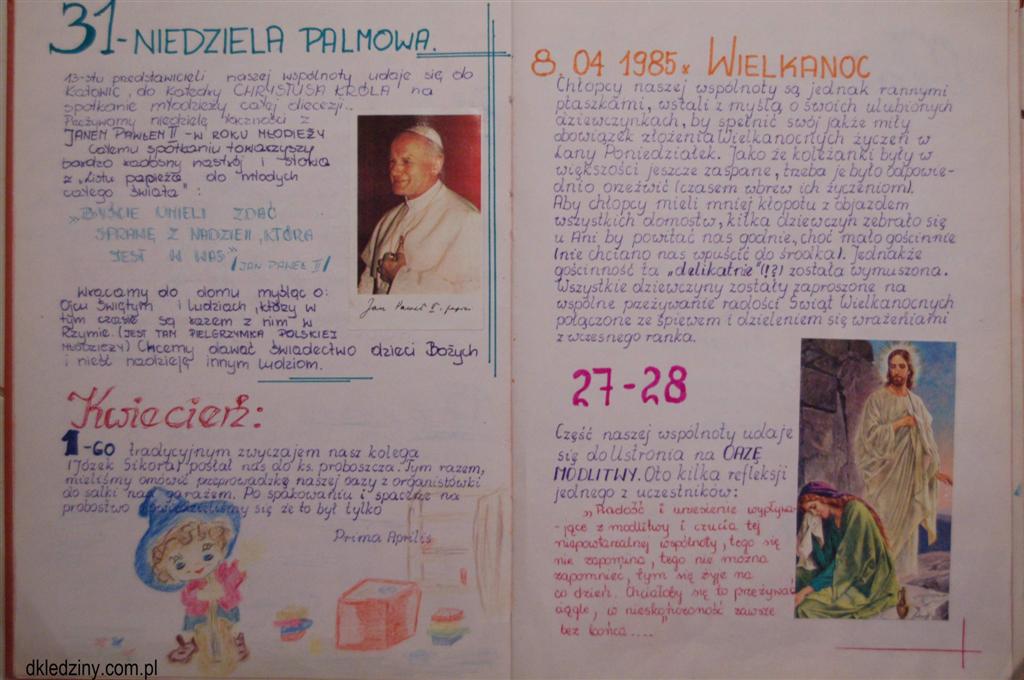 31-NIEDZIELA PALMOWA.
13-stu przedstawicieli naszej wspólnoty udaje się do
Katowic, do Katedry CHRYSTUSA KRÓLA na
spotkanie młodzieży całej diecezji..
Przeżywamy niedzielę łączności z
JANEM PAWŁEM II - W ROKU MŁODZIEŻY
Całemu spotkaniu towarzyszy
bardzo radosny nastrój i słowa
z „Listu papieża do młodych
całego świata":
„BYŚCIE UMIELI ZDAĆ
SPRAWĘ Z NADZIEII, KTÓRA
JEST W WAS" /JAN PAWEŁ II/
Jan Paweł II, papież
Wracamy do domu myśląc o:
Ojcu Świętym i ludziach, którzy w
tym czasie są razem z nim w
Rzymie. (JEST TAM PIELGRZYMKA POLSKIEJ
MŁODZIEŻY) Chcemy dawać świadectwo dzieci Bożych
i nieść nadzieję innym ludziom.
Kwiecień:
1-GO tradycyjnym zwyczajem nasz kolega
(Józek Sikora) posłał nas do ks. proboszcza. Tym razem,
mieliśmy omówić przeprowadzkę naszej oazy z organistówki
do salki nad garażem. Po spakowaniu i spacerze na
probostwo się że to był tylko
Prima Aprilis
8. 04 1985r WIELKANOC
Chłopcy naszej wspólnoty są jednak rannymi
ptaszkami, wstali z myślą o swoich ulubionych
dziewczynkach, by spełnić swój jakże miły
obowiązek złożenia Wielkanocnych życzeń w
Lany Poniedziałek. Jako że koleżanki były w
większości jeszcze zaspane, trzeba je było odpowie-
dnio orzeźwić (czasem wbrew ich życzeniom).
Aby chłopcy mieli mniej kłopotu z objazdem
wszystkich domostw, kilka dziewczyn zebrało się
u Ani by powitać nas godnie, choć mało gościnnie
(nie chciano nas wpuścić do środka). Jednakże
gościnność ta „delikatnie"(!?) została wymuszona.
Wszystkie dziewczyny zostały zaproszone na
wspólne przeżywanie radości Świąt Wielkanocnych
połączone ze śpiewem i dzieleniem się wrażeniami
z wczesnego ranka.
27-28
Część naszej wspólnoty udaje
się do Ustronia na OAZĘ
MODLITWY. Oto kilka refleksji
jednego z uczestników:
„Radość i uniesienie wypływa-
-jące z modlitwy i czucia tej
niepowtarzalnej wspólnoty, tego się
nie zapomina, tego nie można
zapomnieć, tym się żyje na
co dzień. Chciałoby się to przeżywać
ciągle, w nieskończoność zawsze
bez końca....
dkledziny.com.pl